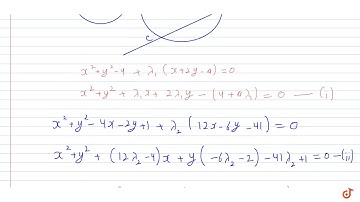 C
x²+y²-4 + λ₁ (x+2y-a) = 0
x²+y² + λ₁x + 2λ₁y - (4+aλ₁) = 0 — (i)
x²+y² - 4x - 2y + 1 + λ₂ (12x - 6y - 41) = 0
x²+y² + (12λ₂-4)x + y(-6λ₂-2) - 41λ₂ + 1 = 0 — (ii)